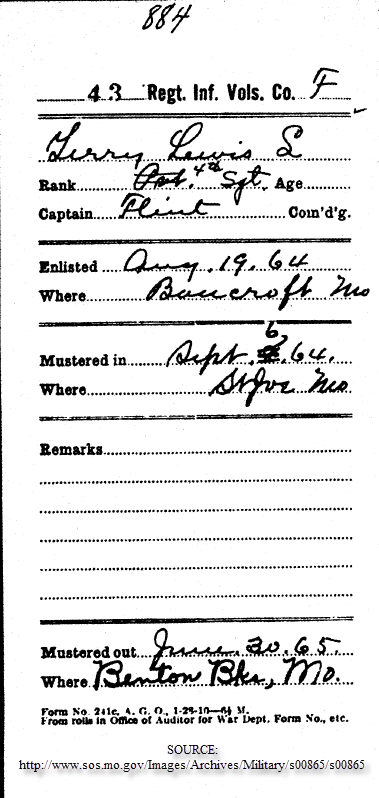 884
43 Regt. Inf. Vols. Co. F
Terry Lewis S
Rank Pvt. 4th Sgt. Age
Captain Flint Com'd'g.
Enlisted Aug. 19. 64
Where Bancroft Mo
6
Mustered in Sept. 64.
Where St Joe Mo
Remarks
Mustered out June 30. 65.
Where Benton Bks, Mo.
Form No. 241c, A. G. O., 1-28-10—64 M.
From rolls in Office of Auditor for War Dept. Form No., etc.
SOURCE:
http://www.sos.mo.gov/Images/Archives/Military/s00865/s00865